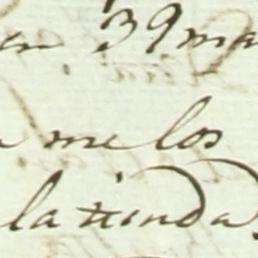 en 39 ma
me los
la tienda